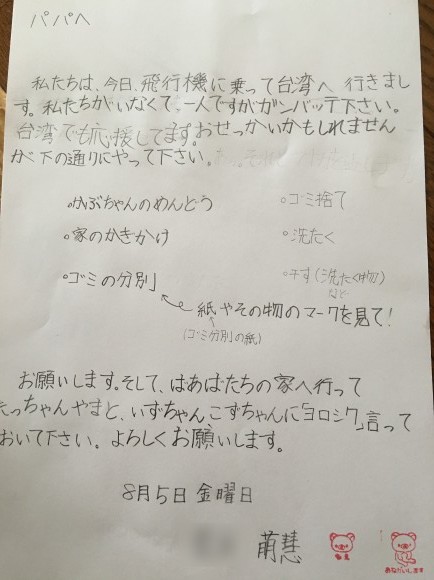 パパへ
私たちは、今日、飛行機に乗って台湾へ行きまし
す。私たちがいなくて、一人ですがガンバッテ下さい。
台湾でも応援してます。おせっかいかもしれません
が、下の通りにやって下さい。
◦かぶちゃんのめんどう ◦ゴミ捨て
◦家のかぎかけ ◦洗たく
◦ゴミの分別 ◦干す(洗たく物)など
紙やその物のマークを見て!
(ゴミ分別の紙)
お願いします。そして、ばあばたちの家へ行って
たっちゃんやまと、いずちゃん、こずちゃんに「ヨロシク」言って
おいて下さい。よろしくお願いします。
8月5日 金曜日
萌慧
おねがいします